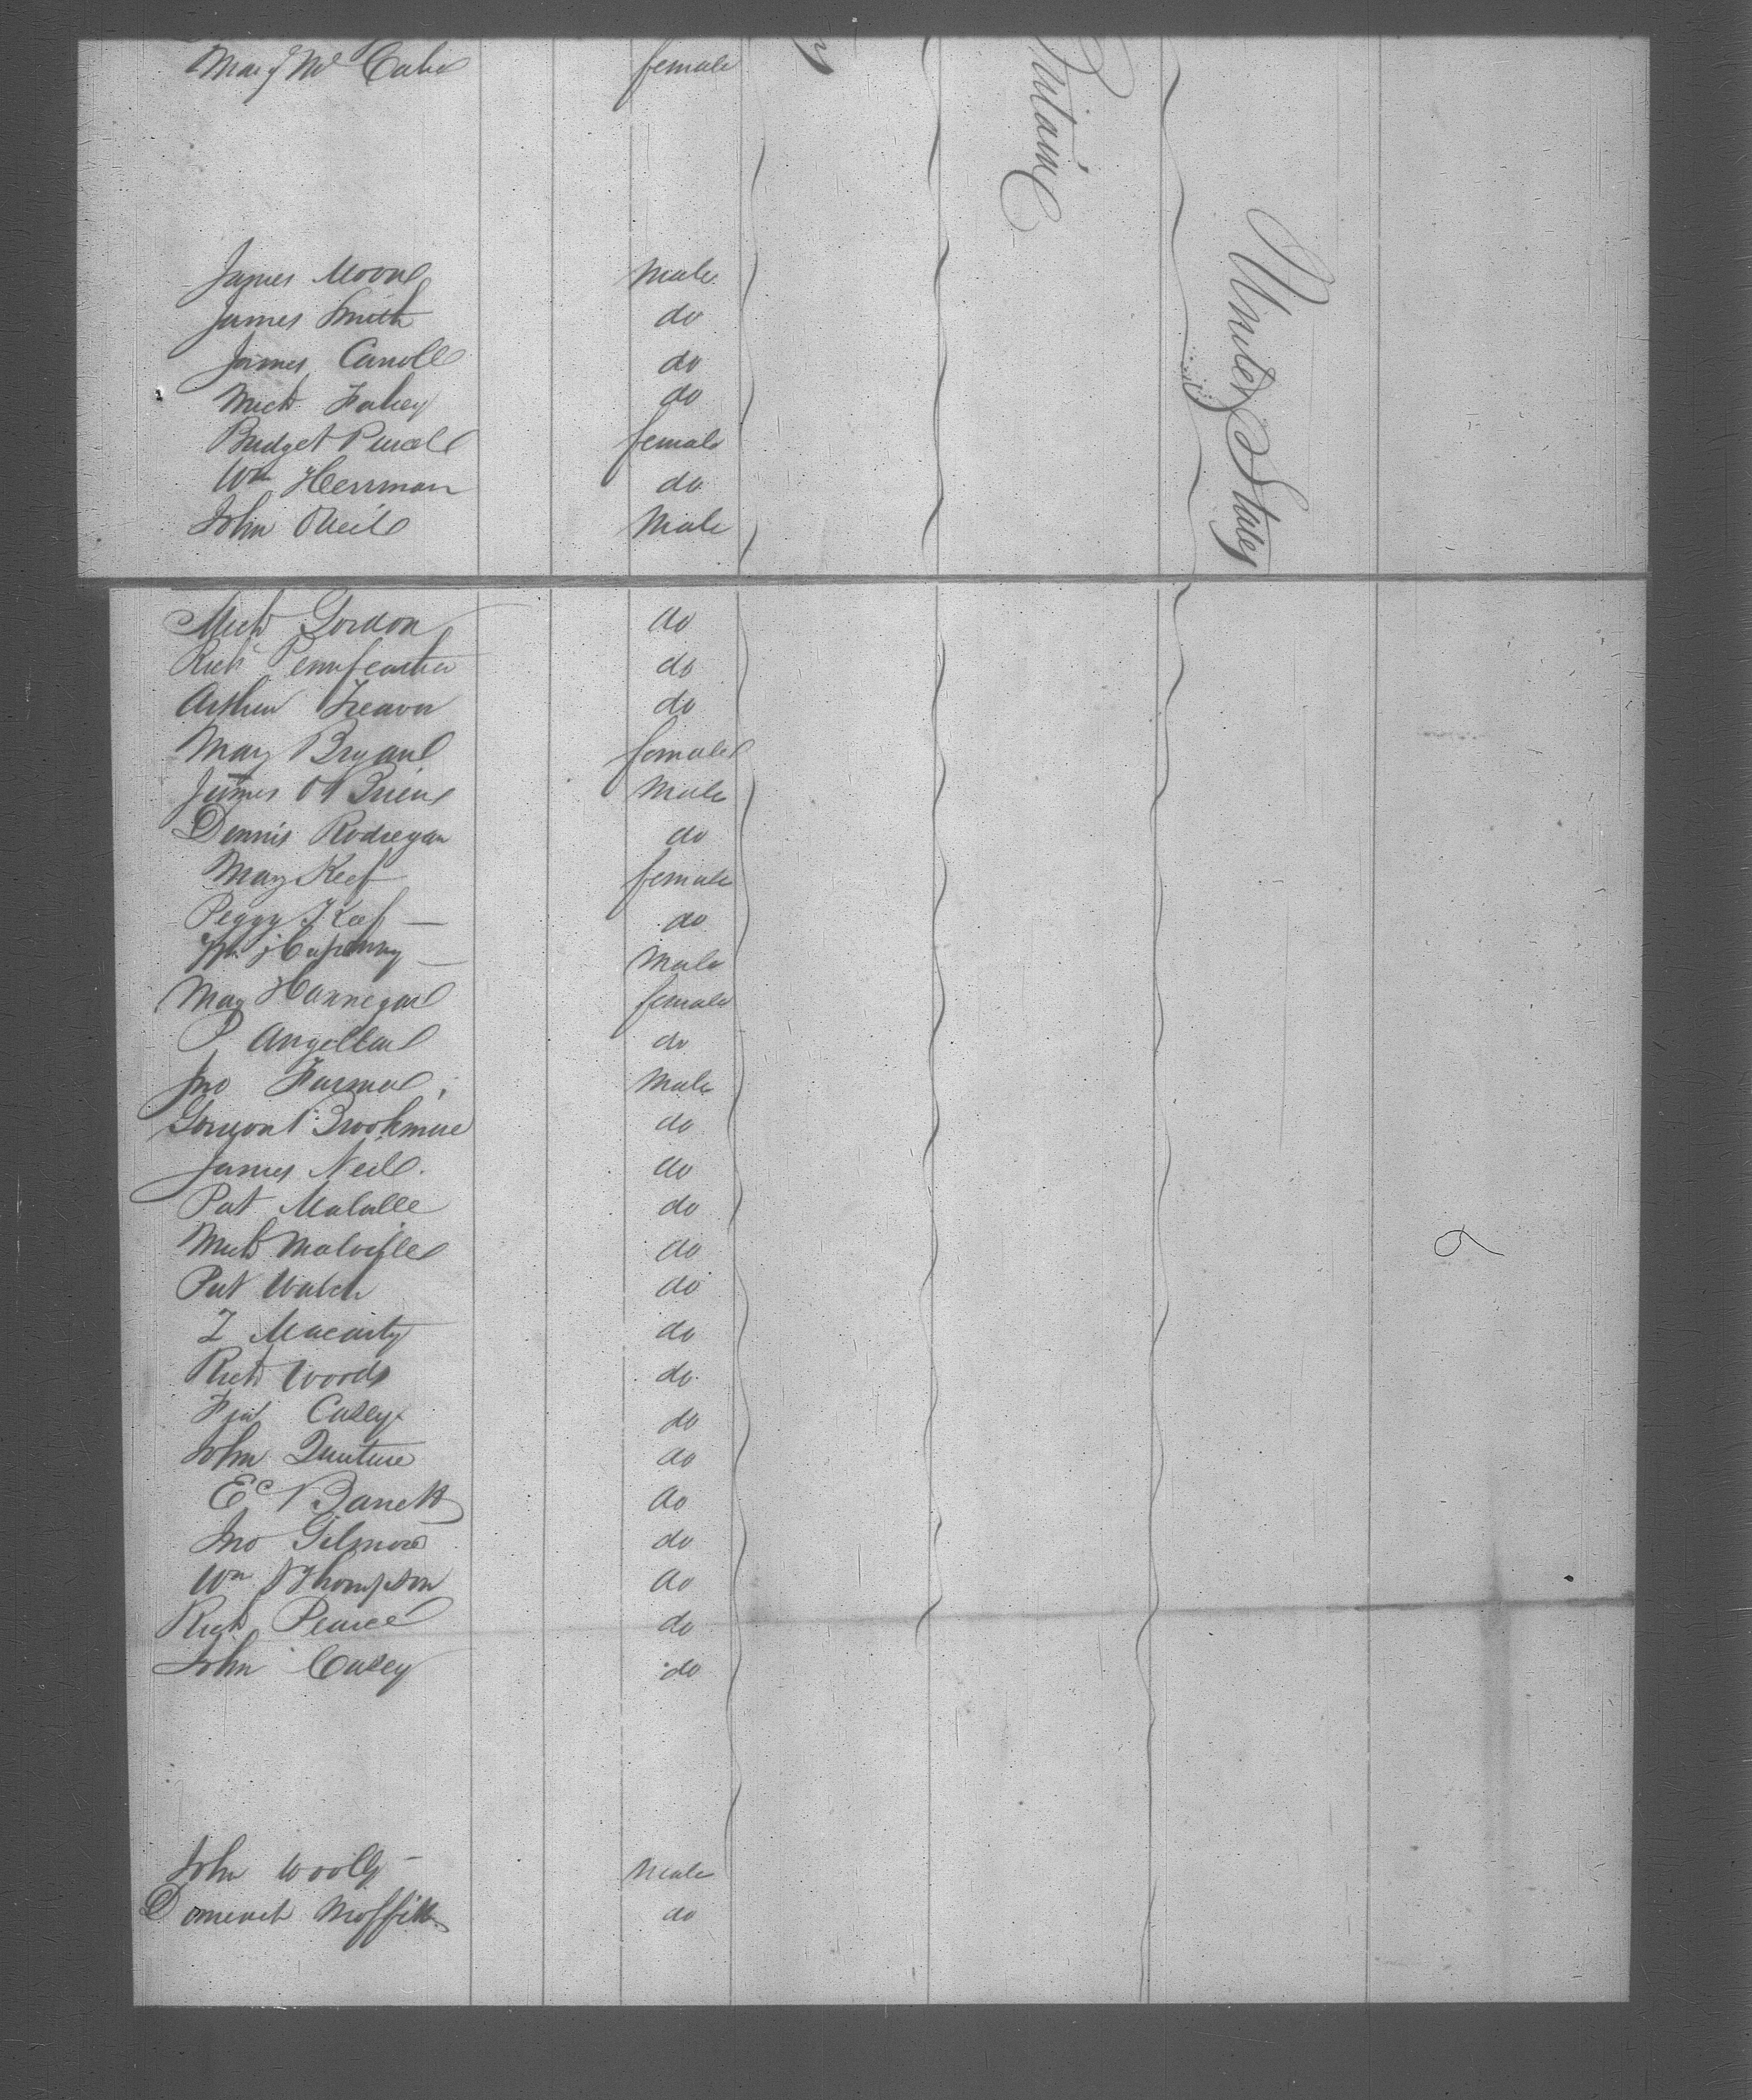 Mary Mc Cabe female
Britain
United States
James Moore male
James Smith do
James Carroll do
Mich Fahey do
Bridget Purcell female
Wm Herrman do
John ONeil Male
Mich Gordon do
Rich Pennfeather do
Arthur do
Mary Bryan female
James O Brien Male
Dennis Rodregan do
Mary Keef female
Peggy Keef do
Male
May Hannegan female
P do
Jno Farmer Male
Brookmire do
James Neil do
Pat do
Mich Malville do
Pat Walsh do
Macarty do
Rich Woods do
Casey do
John do
Barrett do
Jno Gilmore do
Wm Thompson do
Rich Pearce do
John Casey do
John Woolly male
Domenick Moffitt do